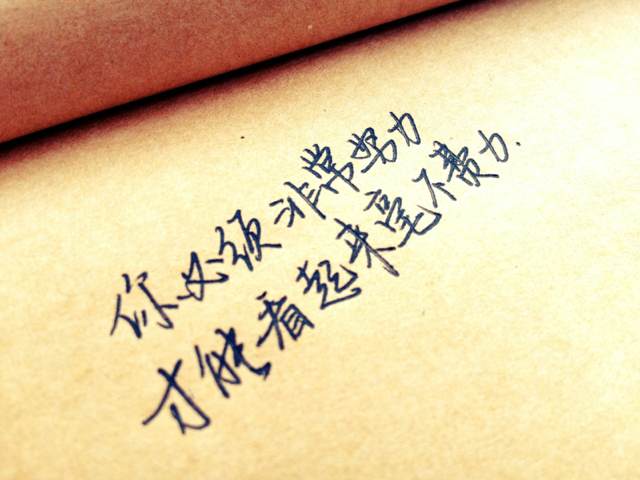 你必须非常努力
才能看起来毫不费力.